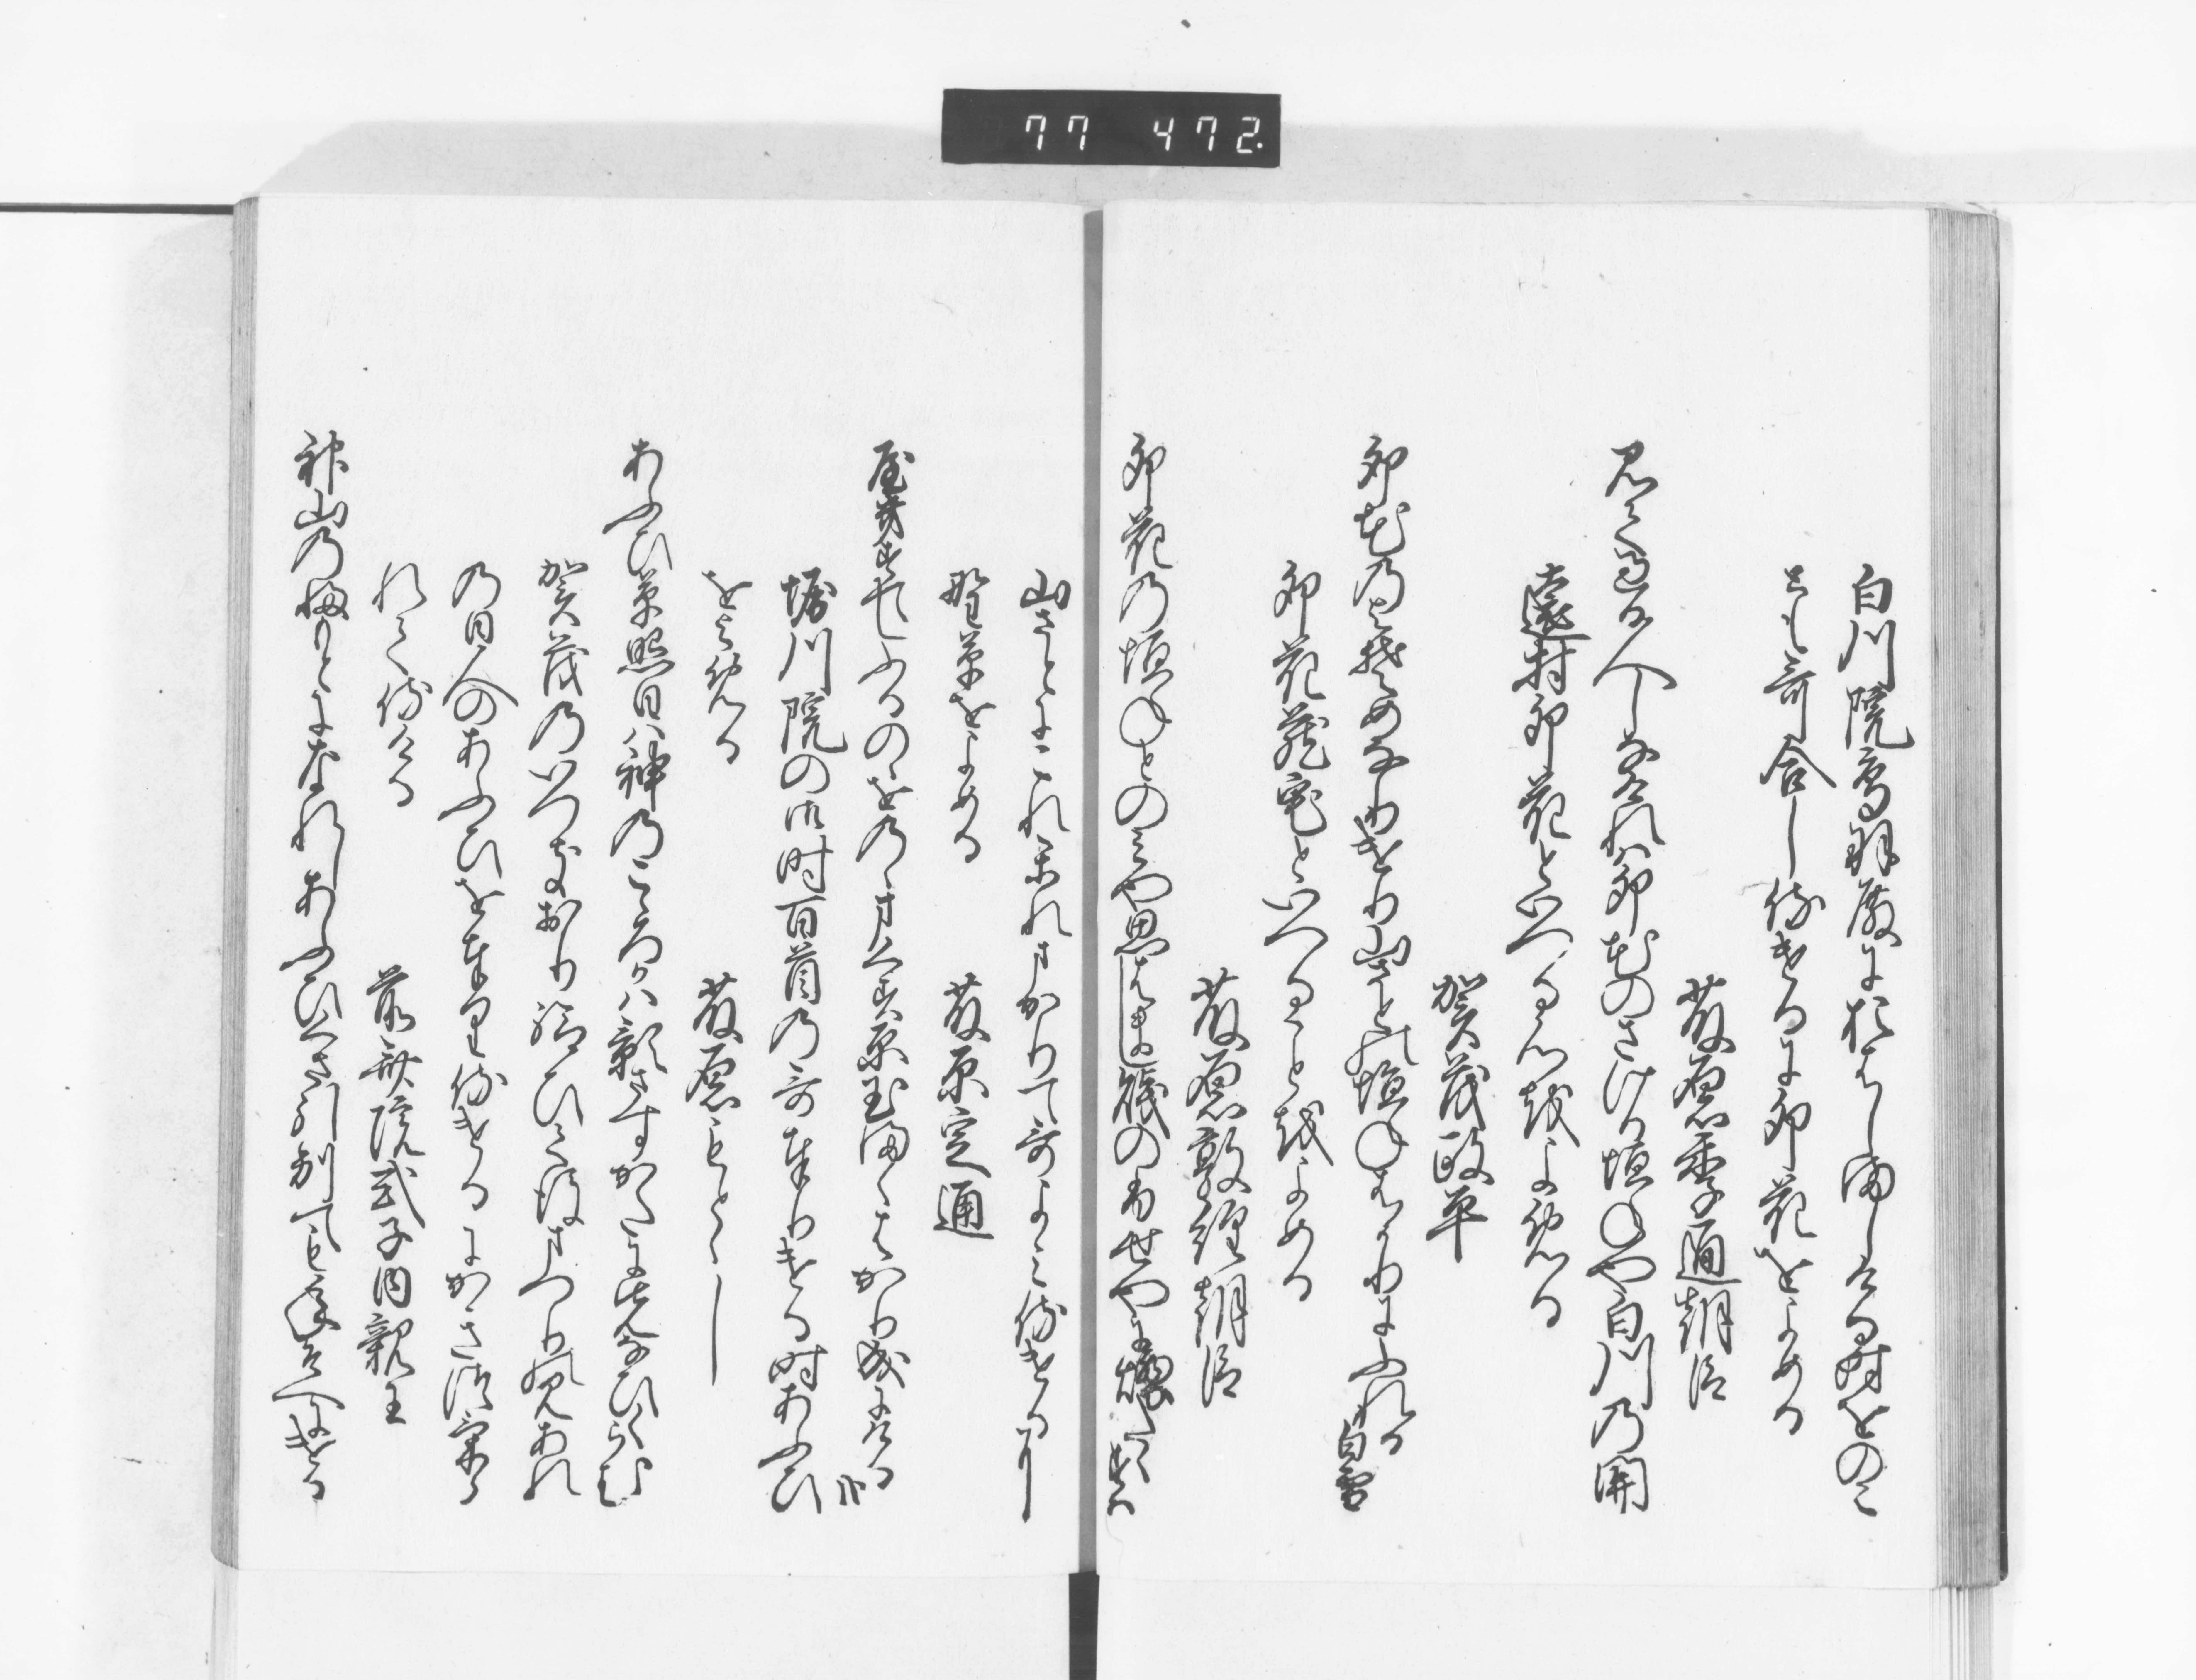 77 472.
白川院鳥羽殿におはしましける時をのこ
とも哥合し侍けるに卯花をよめる
藤原季通朝臣
見て過る人しなけれは卯花のさける垣ねや白川の関
遠村卯花といへる心をよめる
賀茂政平
卯花のよそめなりけり山さとの垣ねはかりにふれる白雪
卯花蔵宅といへることをよめる
藤原敦経朝臣
卯花の垣ねとのみや思はまし賤のふせやに煙たゝすは
山さとにこれかれまかりて哥よみ侍けるに
野草をよめる
藤原定通
ふるのをのゝまくす原玉まくはかり成にける哉
堀川院の御時百首の哥奉りける時あふひ
をよめる
藤原もとゝし
あふひ草照日は神のこゝろかは影さすかたにまつなひくらむ
賀茂のいつきおり給ひて後まつりのみあれ
の日人のあふひを奉り侍けるにかき
れて侍ける
前斎院式子内親王
神山のふもとになれしあふひ草引別ても年そへにける